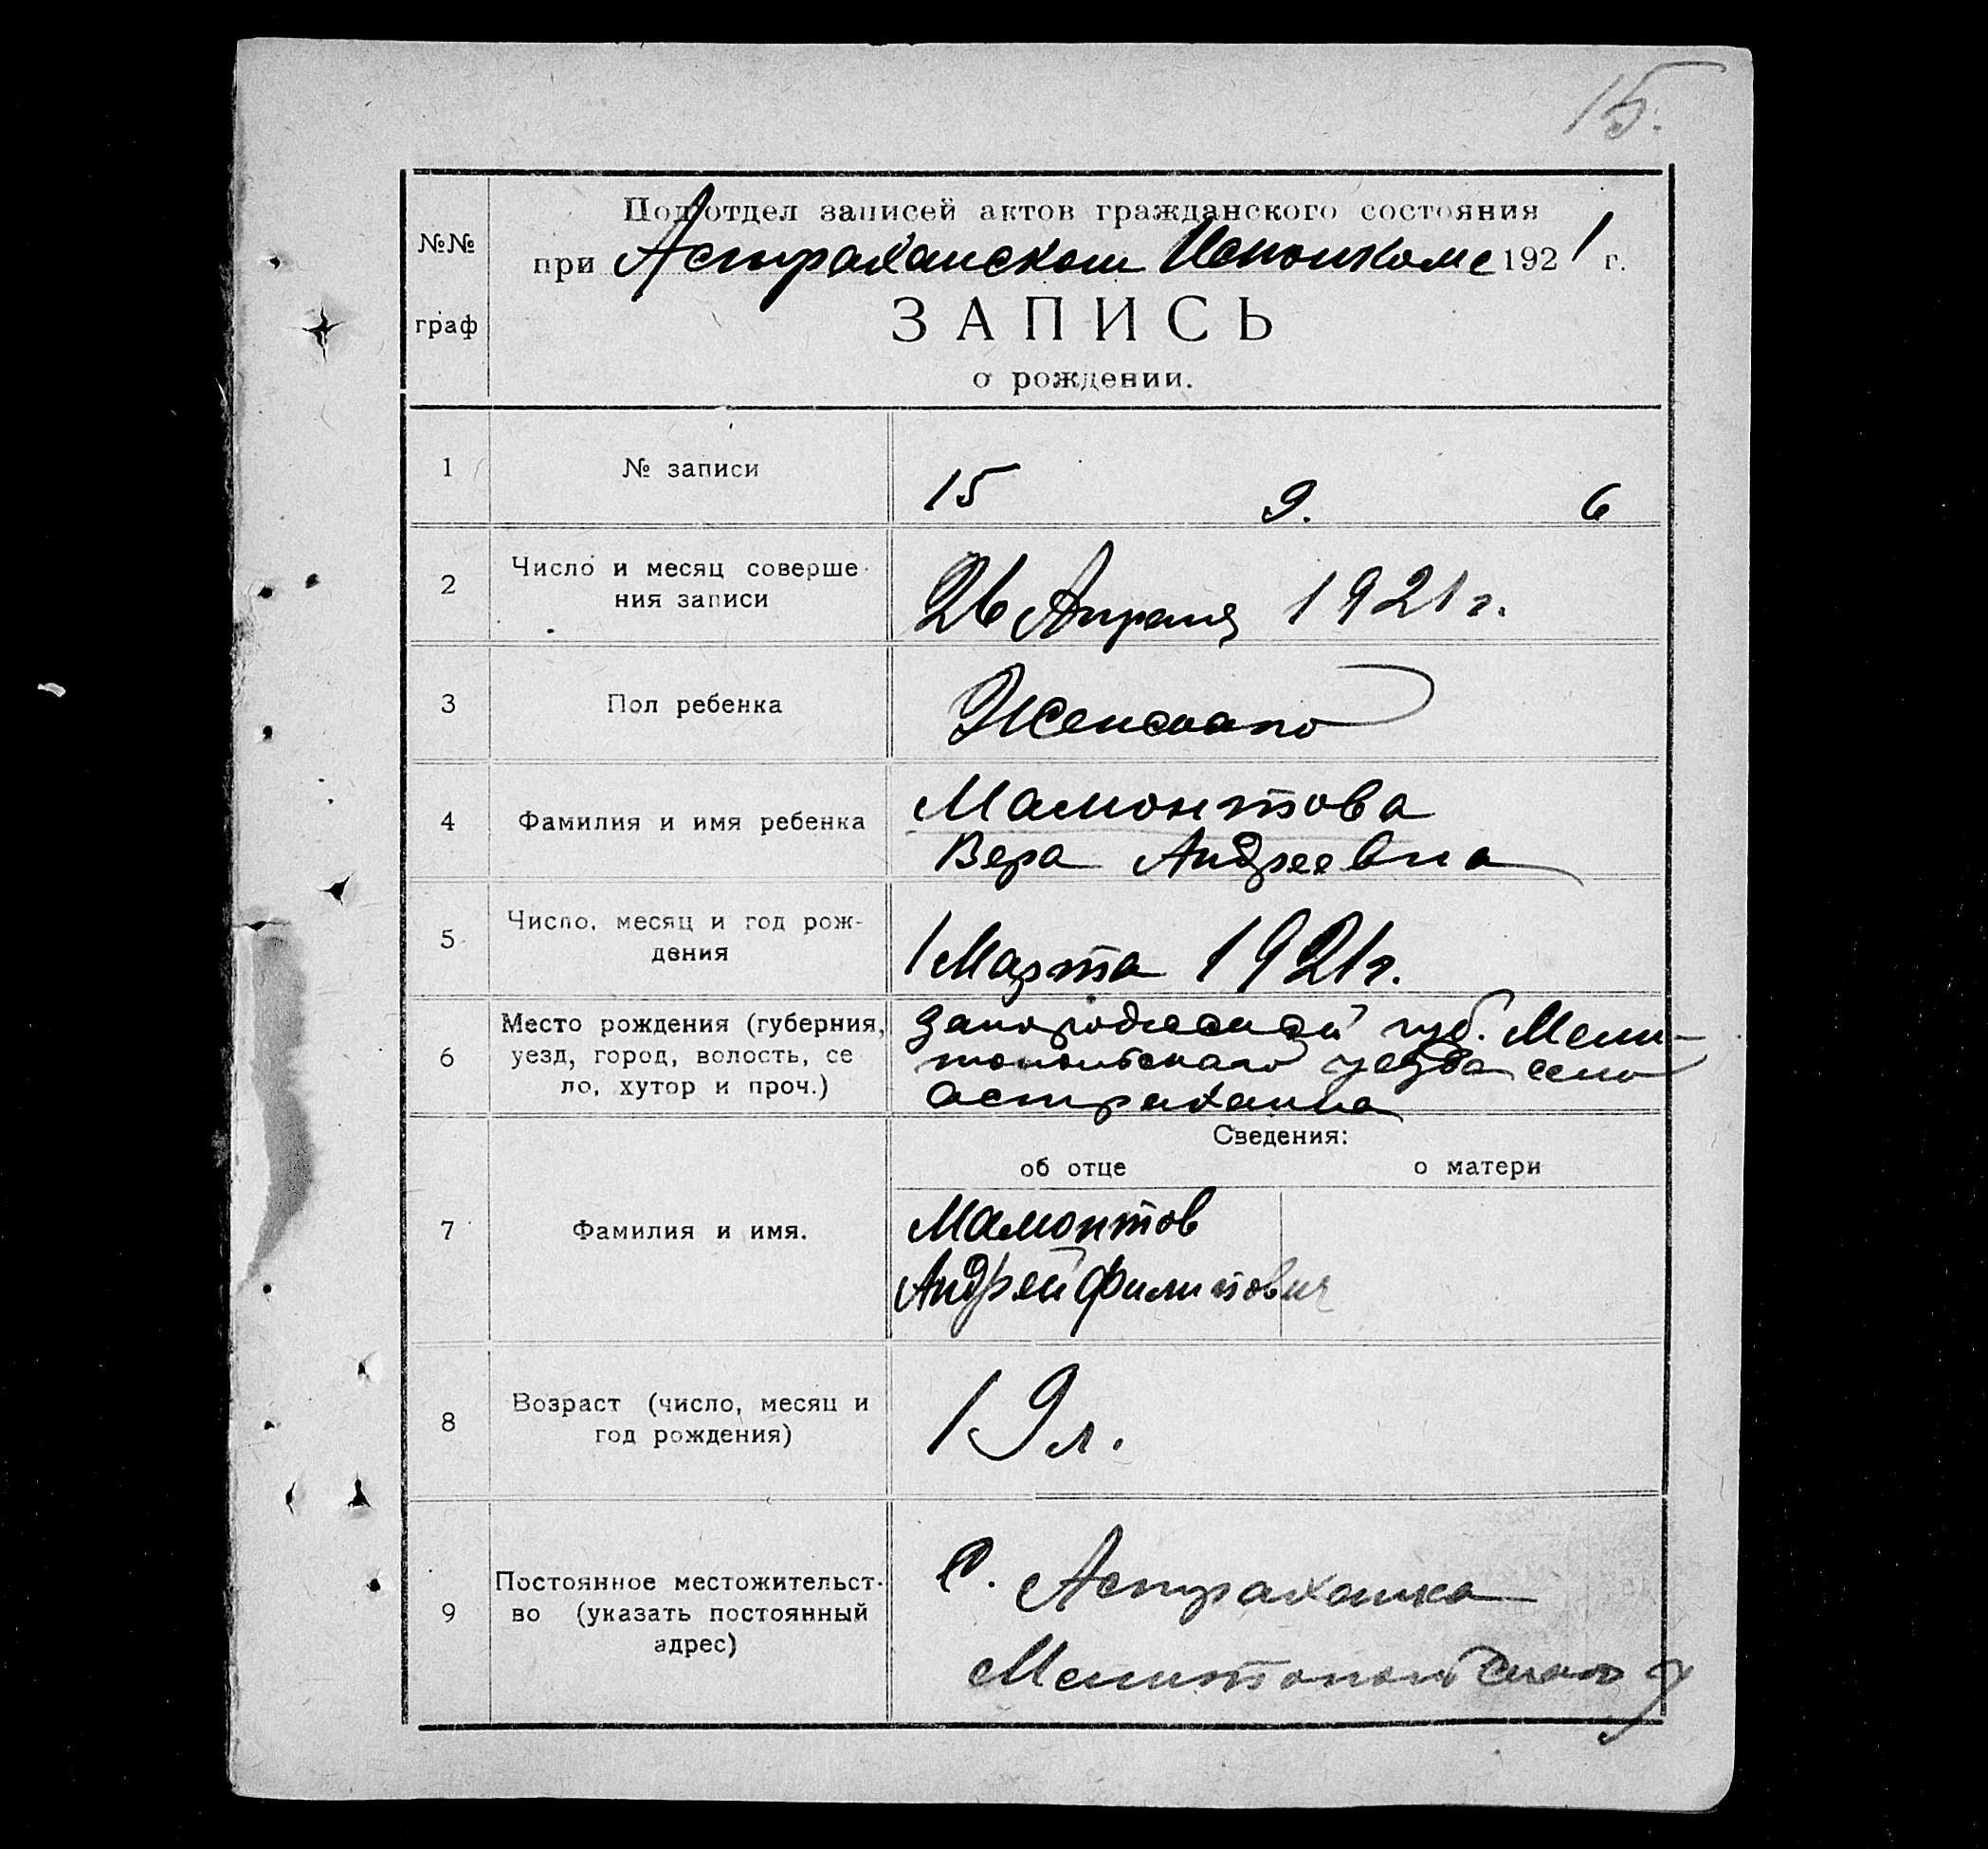 15.
Подотдел записей актов гражданского состояния
№№
при Астраханском Исполкоме 1921 г.
граф
ЗАПИСЬ
о рождении.
1 № записи 15 9. 6
2 Число и месяц соверше-
ния записи
26 Апреля 1921 г.
3 Пол ребенка Женскаго
4 Фамилия и имя ребенка
Мамонтова
Вера Андреевна
5 Число, месяц и год рож-
дения
1 Марта 1921 г.
6 Место рождения (губерния,
уезд, город, волость, се
ло, хутор и проч.)
Запорожской губ. Мели-
топольскаго уезда село
Астраханка
Сведения:
об отце о матери
7 Фамилия и имя.
Мамонтов
Андрей Филипович
8 Возраст (число, месяц и
год рождения)
19 л.
9 Постоянное местожительст-
во (указать постоянный
адрес)
С. Астраханка
Мелитопольскаго у